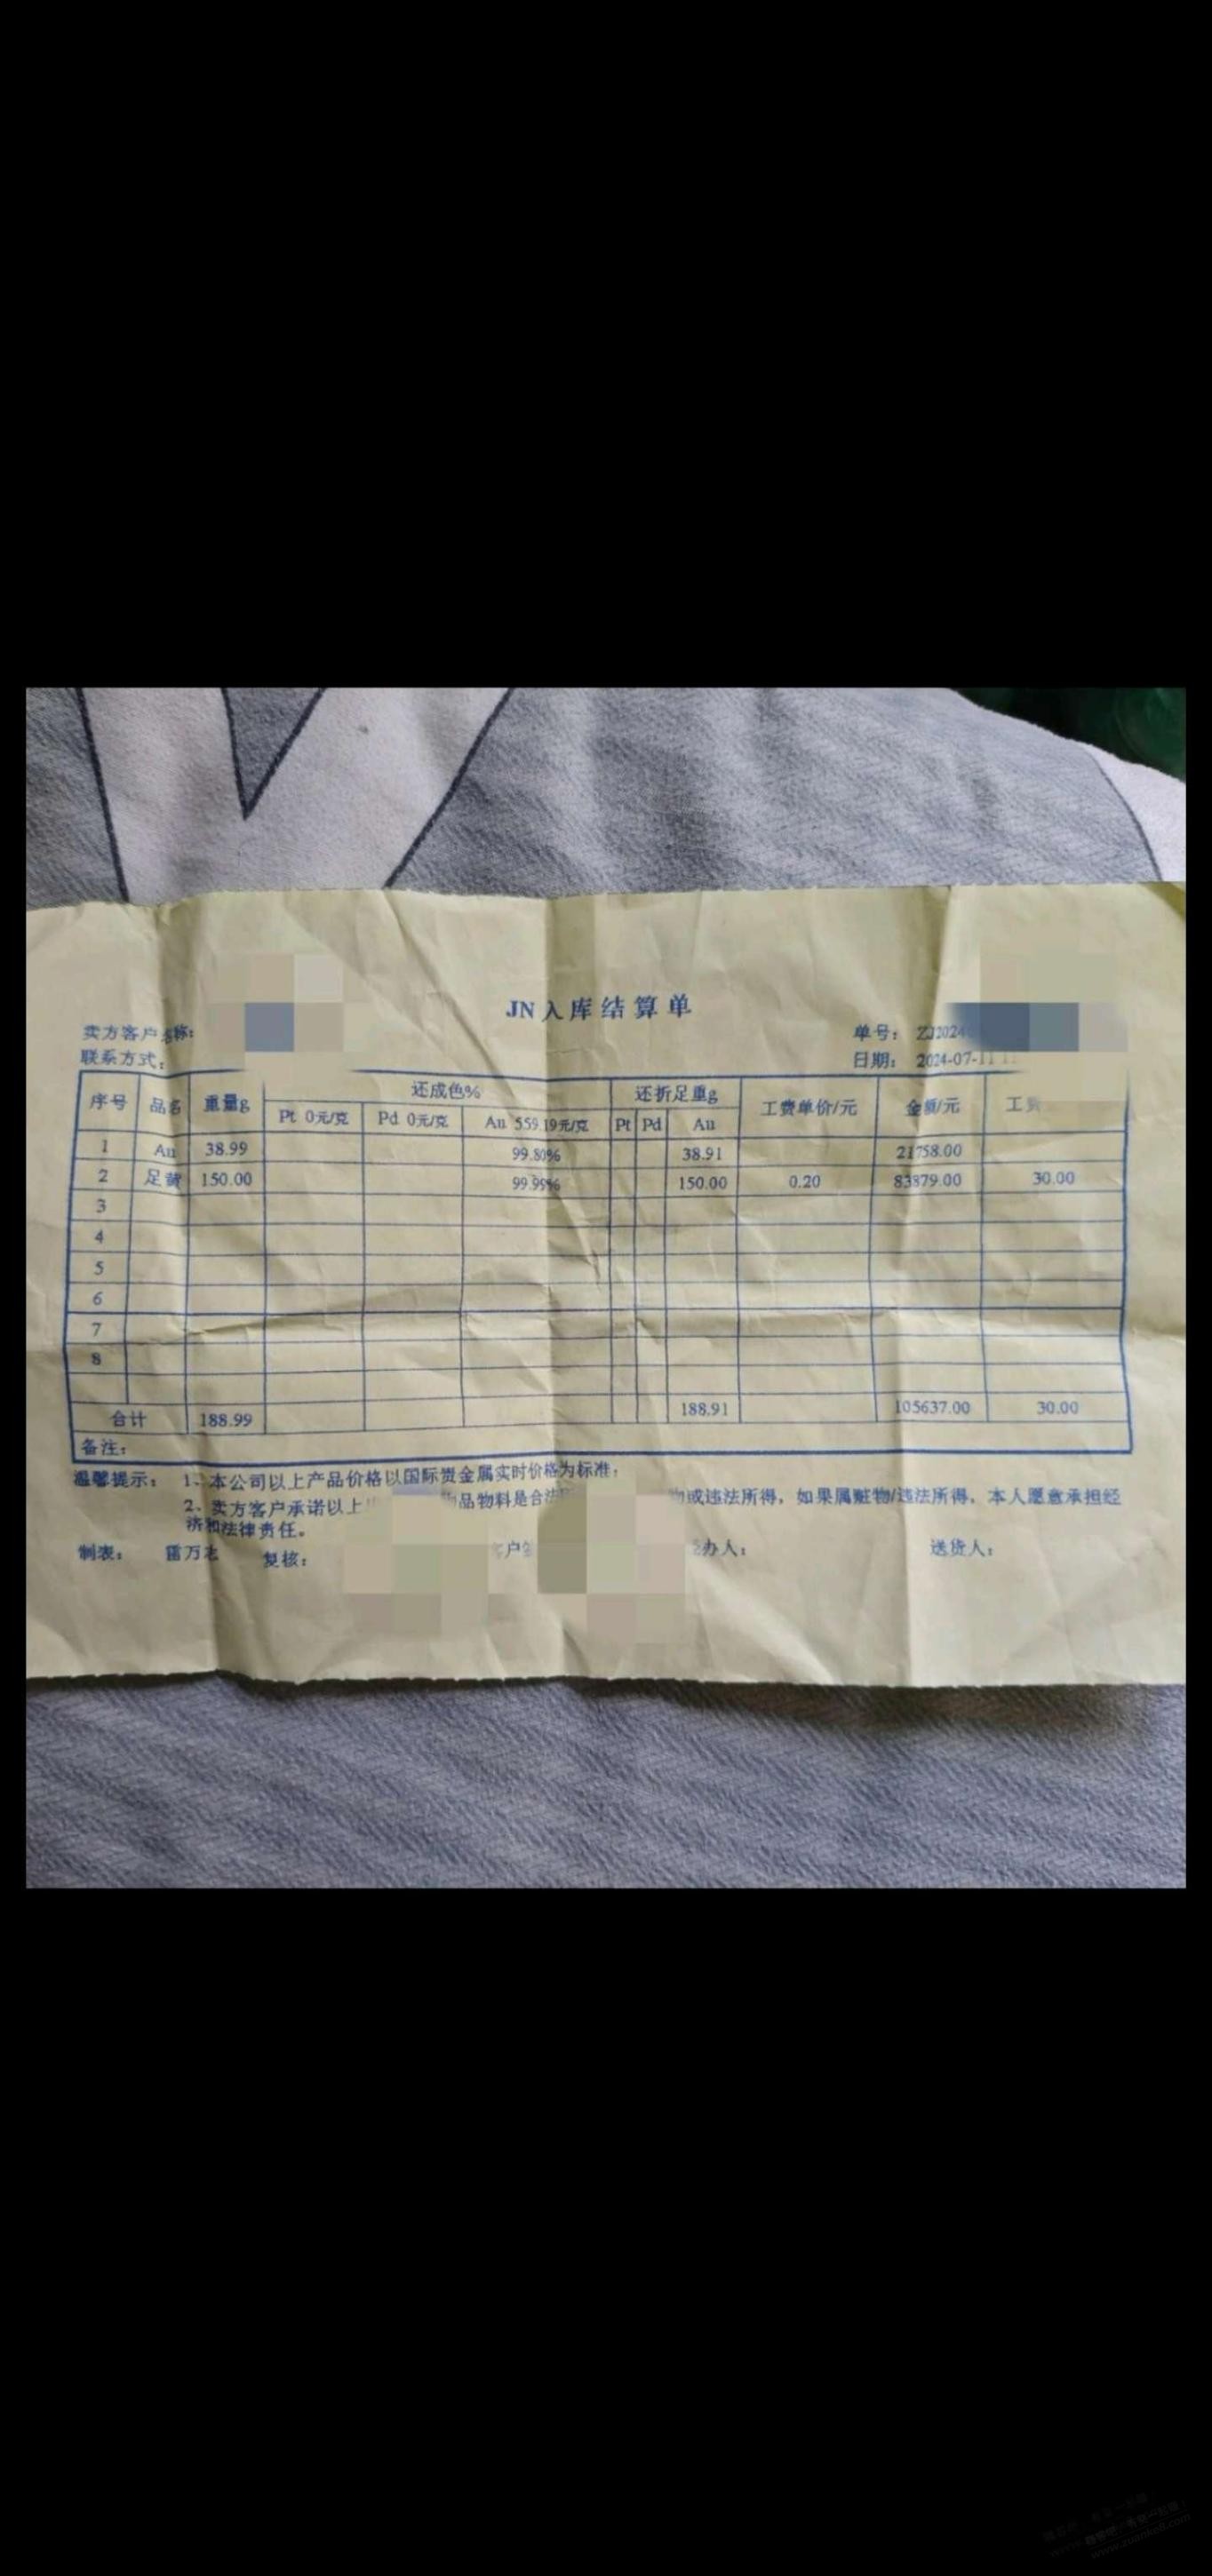 JN入库结算单
卖方客户名称:
单号: ZJ2024
联系方式:
日期: 2024-07-11
序号 品名 重量g 还成色% 还折足重g 工费单价/元 金额/元 工费
Pt 0元/克 Pd 0元/克 Au 559.19元/克 Pt Pd Au
1 Au 38.99 99.80% 38.91 21758.00
2 足黄 150.00 99.99% 150.00 0.20 83879.00 30.00
3
4
5
6
7
8
合计 188.99 188.91 105637.00 30.00
备注:
温馨提示: 1、本公司以上产品价格以国际贵金属实时价格为标准;
2、卖方客户承诺以上 物品物料是合法 物或违法所得,如果属赃物/违法所得,本人愿意承担经
济和法律责任。
制表: 雷万志 复核: 客户 办人: 送货人:
www.zuanke8.com